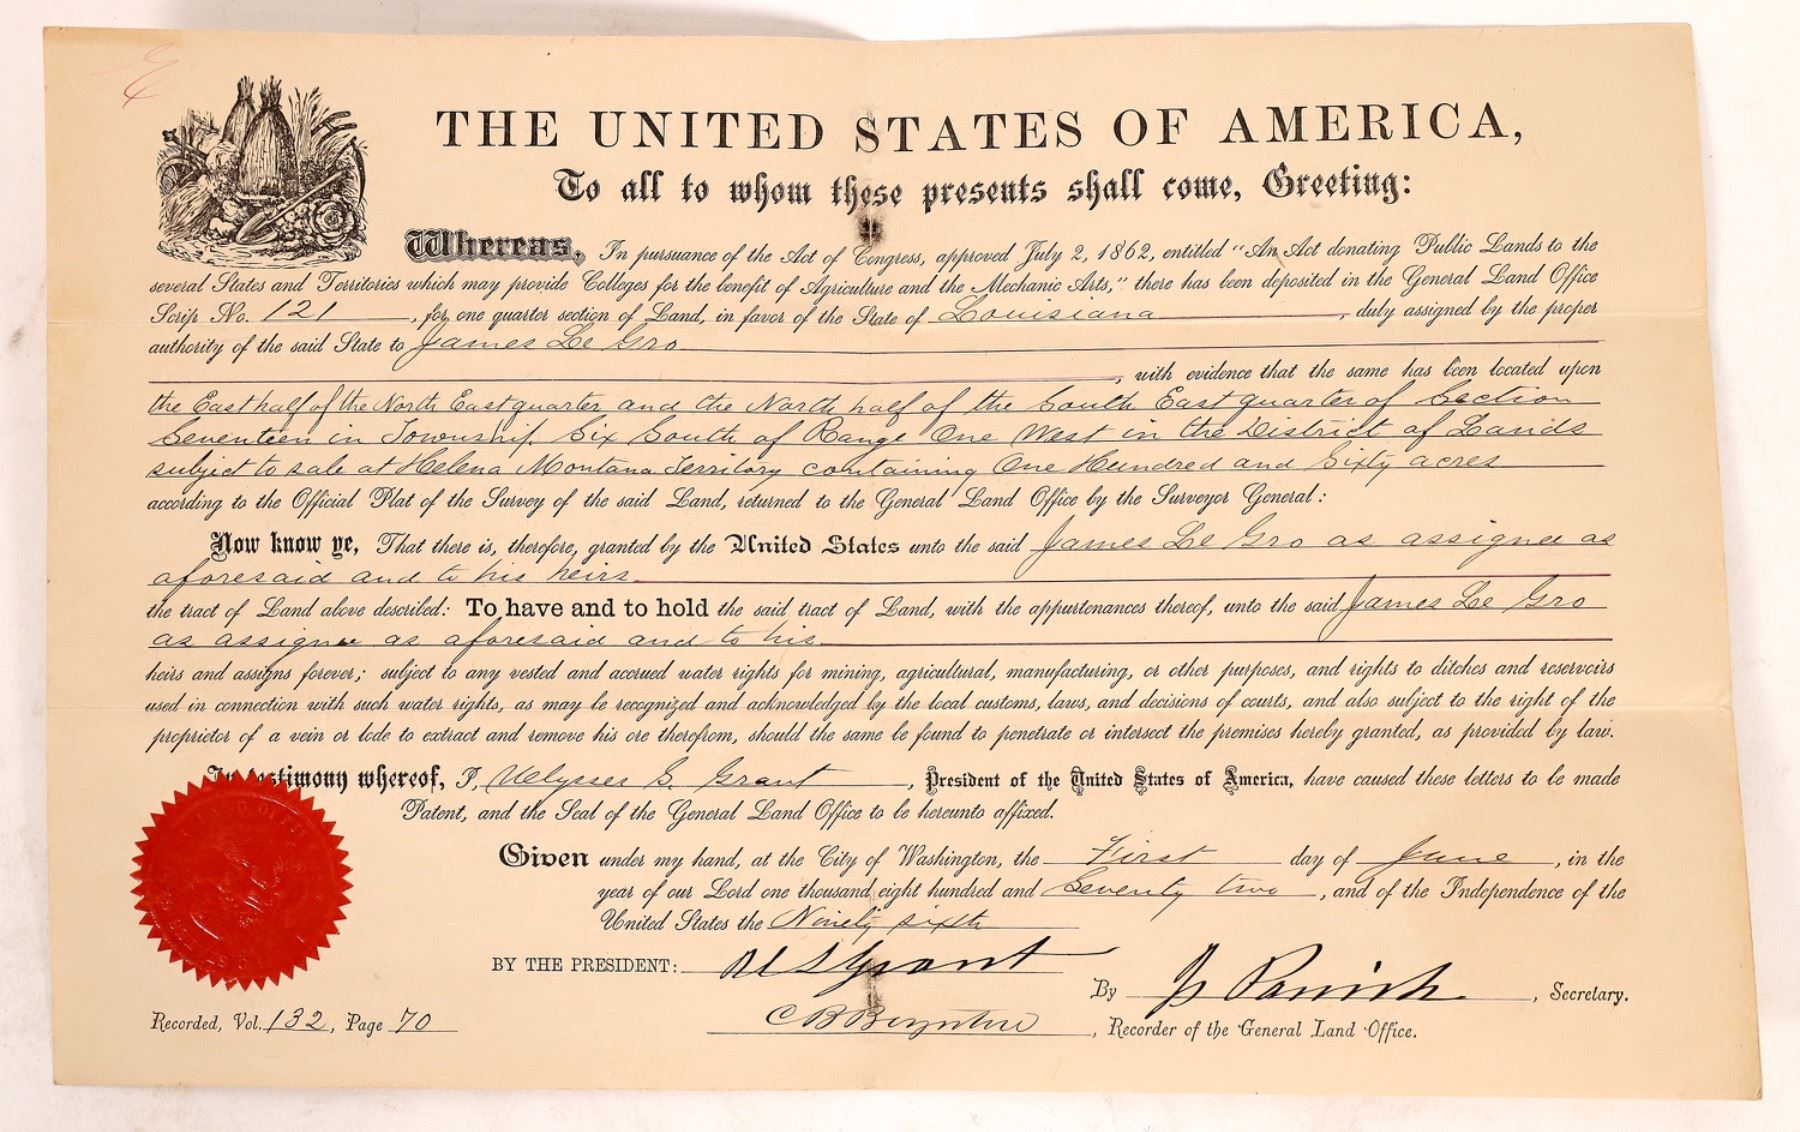 THE UNITED STATES OF AMERICA,
To all to whom these presents shall come, Greeting:
Whereas, In pursuance of the Act of Congress, approved July 2, 1862, entitled "An Act donating Public Lands to the
several States and Territories which may provide Colleges for the benefit of Agriculture and the Mechanic Arts," there has been deposited in the General Land Office
Scrip No. 121, for one quarter section of Land, in favor of the State of Louisiana, duly assigned by the proper
authority of the said State to James Le Gro
, with evidence that the same has been located upon
the East half of the North East quarter and the North half of the South East quarter of Section
Seventeen in Township Six South of Range One West in the District of Lands
subject to sale at Helena Montana Territory containing One Hundred and Sixty acres
according to the Official Plat of the Survey of the said Land, returned to the General Land Office by the Surveyor General:
Now know ye, That there is, therefore, granted by the United States unto the said James Le Gro as assignee as
aforesaid and to his heirs
the tract of Land above described: To have and to hold the said tract of Land, with the appurtenances thereof, unto the said James Le Gro
as assignee as aforesaid and to his
heirs and assigns forever; subject to any vested and accrued water rights for mining, agricultural, manufacturing, or other purposes, and rights to ditches and reservoirs
used in connection with such water rights, as may be recognized and acknowledged by the local customs, laws, and decisions of courts, and also subject to the right of the
proprietor of a vein or lode to extract and remove his ore therefrom, should the same be found to penetrate or intersect the premises hereby granted, as provided by law.
In testimony whereof, I, Ulysses S. Grant, President of the United States of America, have caused these letters to be made
Patent, and the Seal of the General Land Office to be hereunto affixed.
Given under my hand, at the City of Washington, the First day of June, in the
year of our Lord one thousand eight hundred and Seventy two, and of the Independence of the
United States the Ninety sixth
BY THE PRESIDENT: U S Grant
By Parrish, Secretary.
Recorded, Vol. 132, Page 70
C B Boynton, Recorder of the General Land Office.